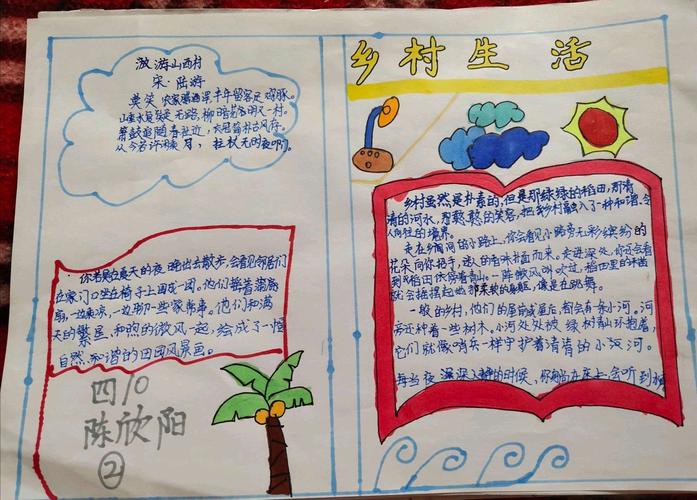 游山西村
宋·陆游
莫笑农家腊酒浑丰年留客足鸡豚。
山重水复疑无路,柳暗花明又一村。
箫鼓追随春社近,衣冠简朴古风存。
从今若许闲乘月,拄杖无时夜叩门。
你若是在夏天的夜晚出去散步,会看见邻居们
在家门口坐在椅子上围成一圈。他们拿着蒲扇
扇,一边乘凉,一边聊一些家常事。他们和满
天的繁星,和煦的微风一起,绘成了一幅
自然,和谐的田园风景画。
四10
陈欣阳
②
乡村生活
乡村虽然是朴素的,但是那绿绿的稻田,清
清的河水,憨憨的笑容,把乡村融入了一种和谐,令
人向往的境界。
走在乡间的小路上,你会看见小路旁五彩缤纷的
花朵向你招手,迷人的香味扑面而来。走进深处,你还会看
到稻田依傍着青山。一阵微风吹过,稻田里的
就会摇摆起他那柔软的身躯,像是在跳舞。
一般的乡村,他们的屋前或屋后,都会有一条小河。河
旁还种着一些树木。小河处处被绿树青山环抱着,
它们就像哨兵一样守护着清清的小河。
每当夜深人静的时候,你躺在床上,会听到